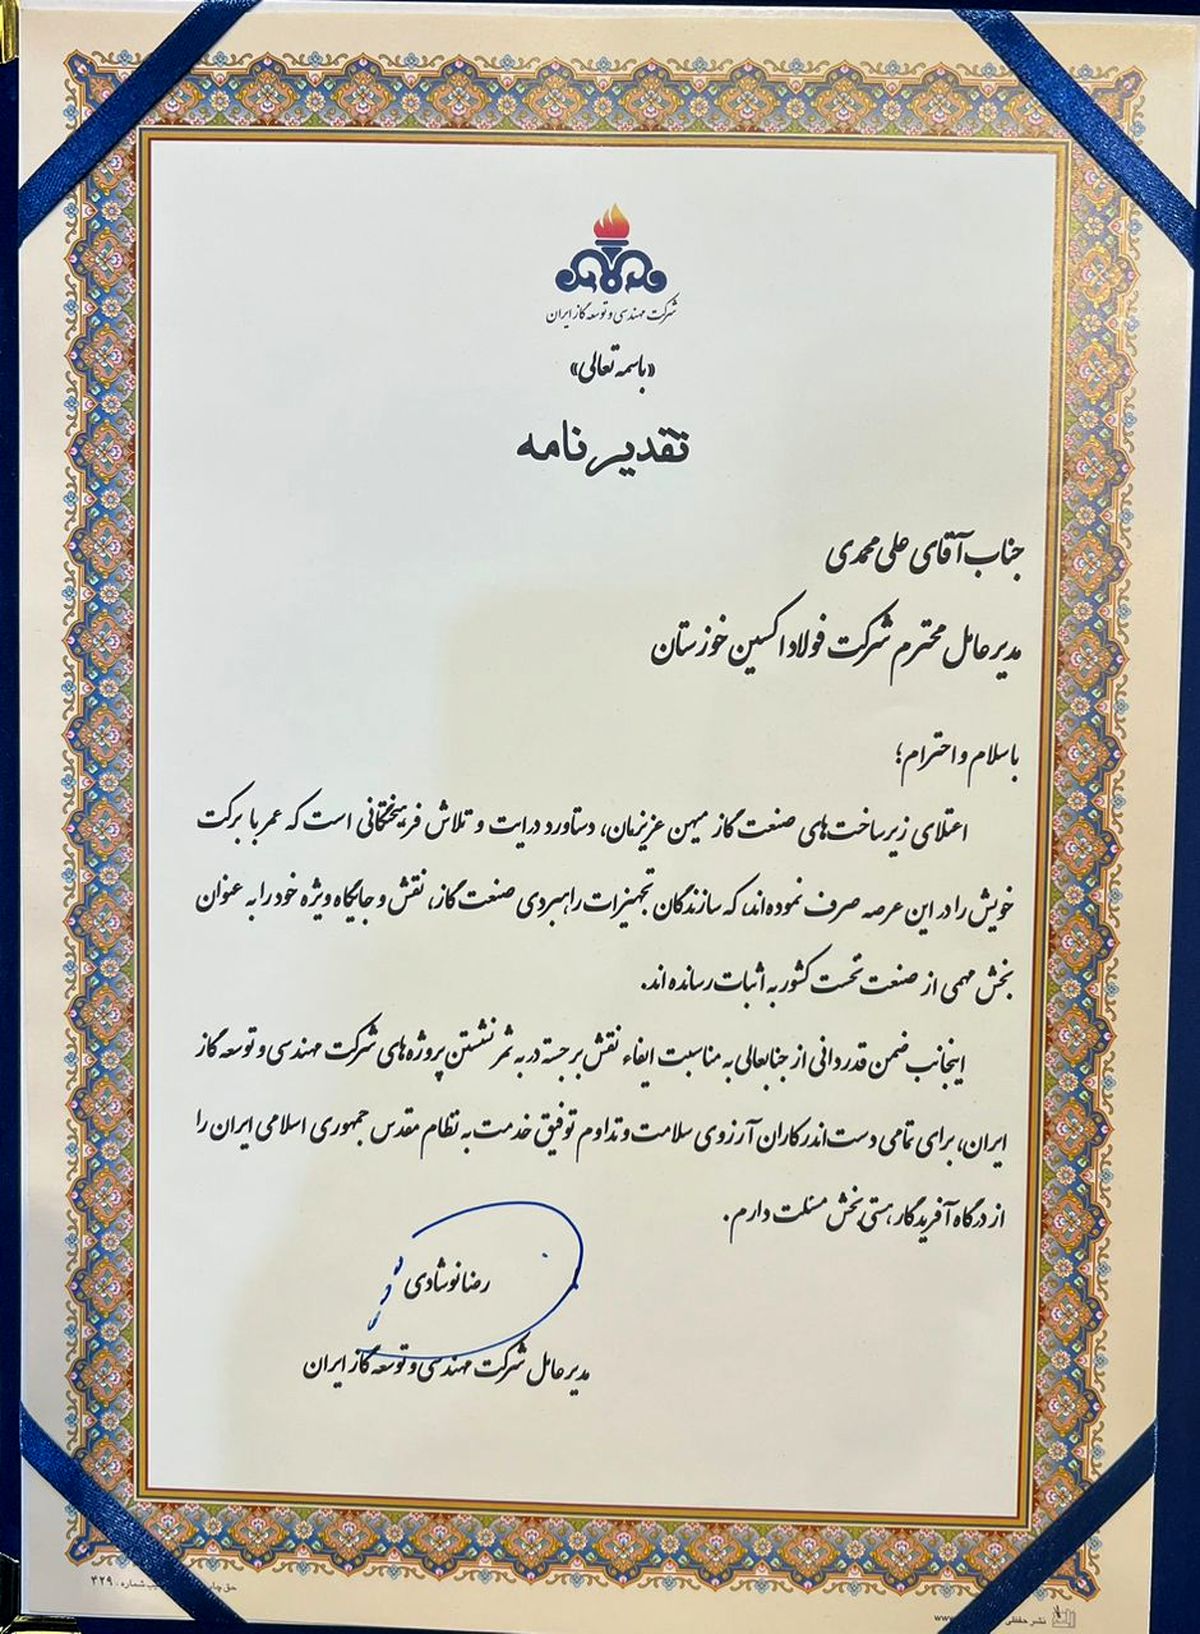 شرکت مهندسی و توسعه گاز ایران
«باسمه تعالی»
تقدیرنامه
جناب آقای علی محمدی
مدیرعامل محترم شرکت فولاد اکسین خوزستان
با سلام و احترام؛
اعتلای زیرساخت‌های صنعت گاز میهن عزیزمان، دستاورد درایت و تلاش فرهیختگانی است که عمر با برکت
خویش را در این عرصه صرف نموده‌اند، که سازندگان تجهیزات راهبردی صنعت گاز، نقش و جایگاه ویژه خود را به عنوان
بخش مهمی از صنعت نخست کشور به اثبات رسانده اند.
اینجانب ضمن قدردانی از جنابعالی به مناسبت ایفاء نقش برجسته در به ثمر نشستن پروژه‌های شرکت مهندسی و توسعه گاز
ایران، برای تمامی دست‌اندرکاران آرزوی سلامت و تداوم توفیق خدمت به نظام مقدس جمهوری اسلامی ایران را
از درگاه آفریدگار هستی بخش مسئلت دارم.
رضا نوشادی
مدیرعامل شرکت مهندسی و توسعه گاز ایران
حق چاپ
شماره: ۳۲۹
نشر حفظی
www